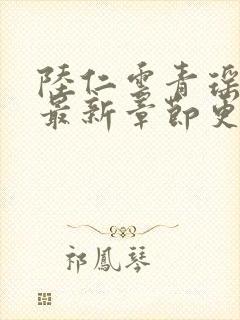 陸仁雲青瑶
最新章節更
祁鳳琴